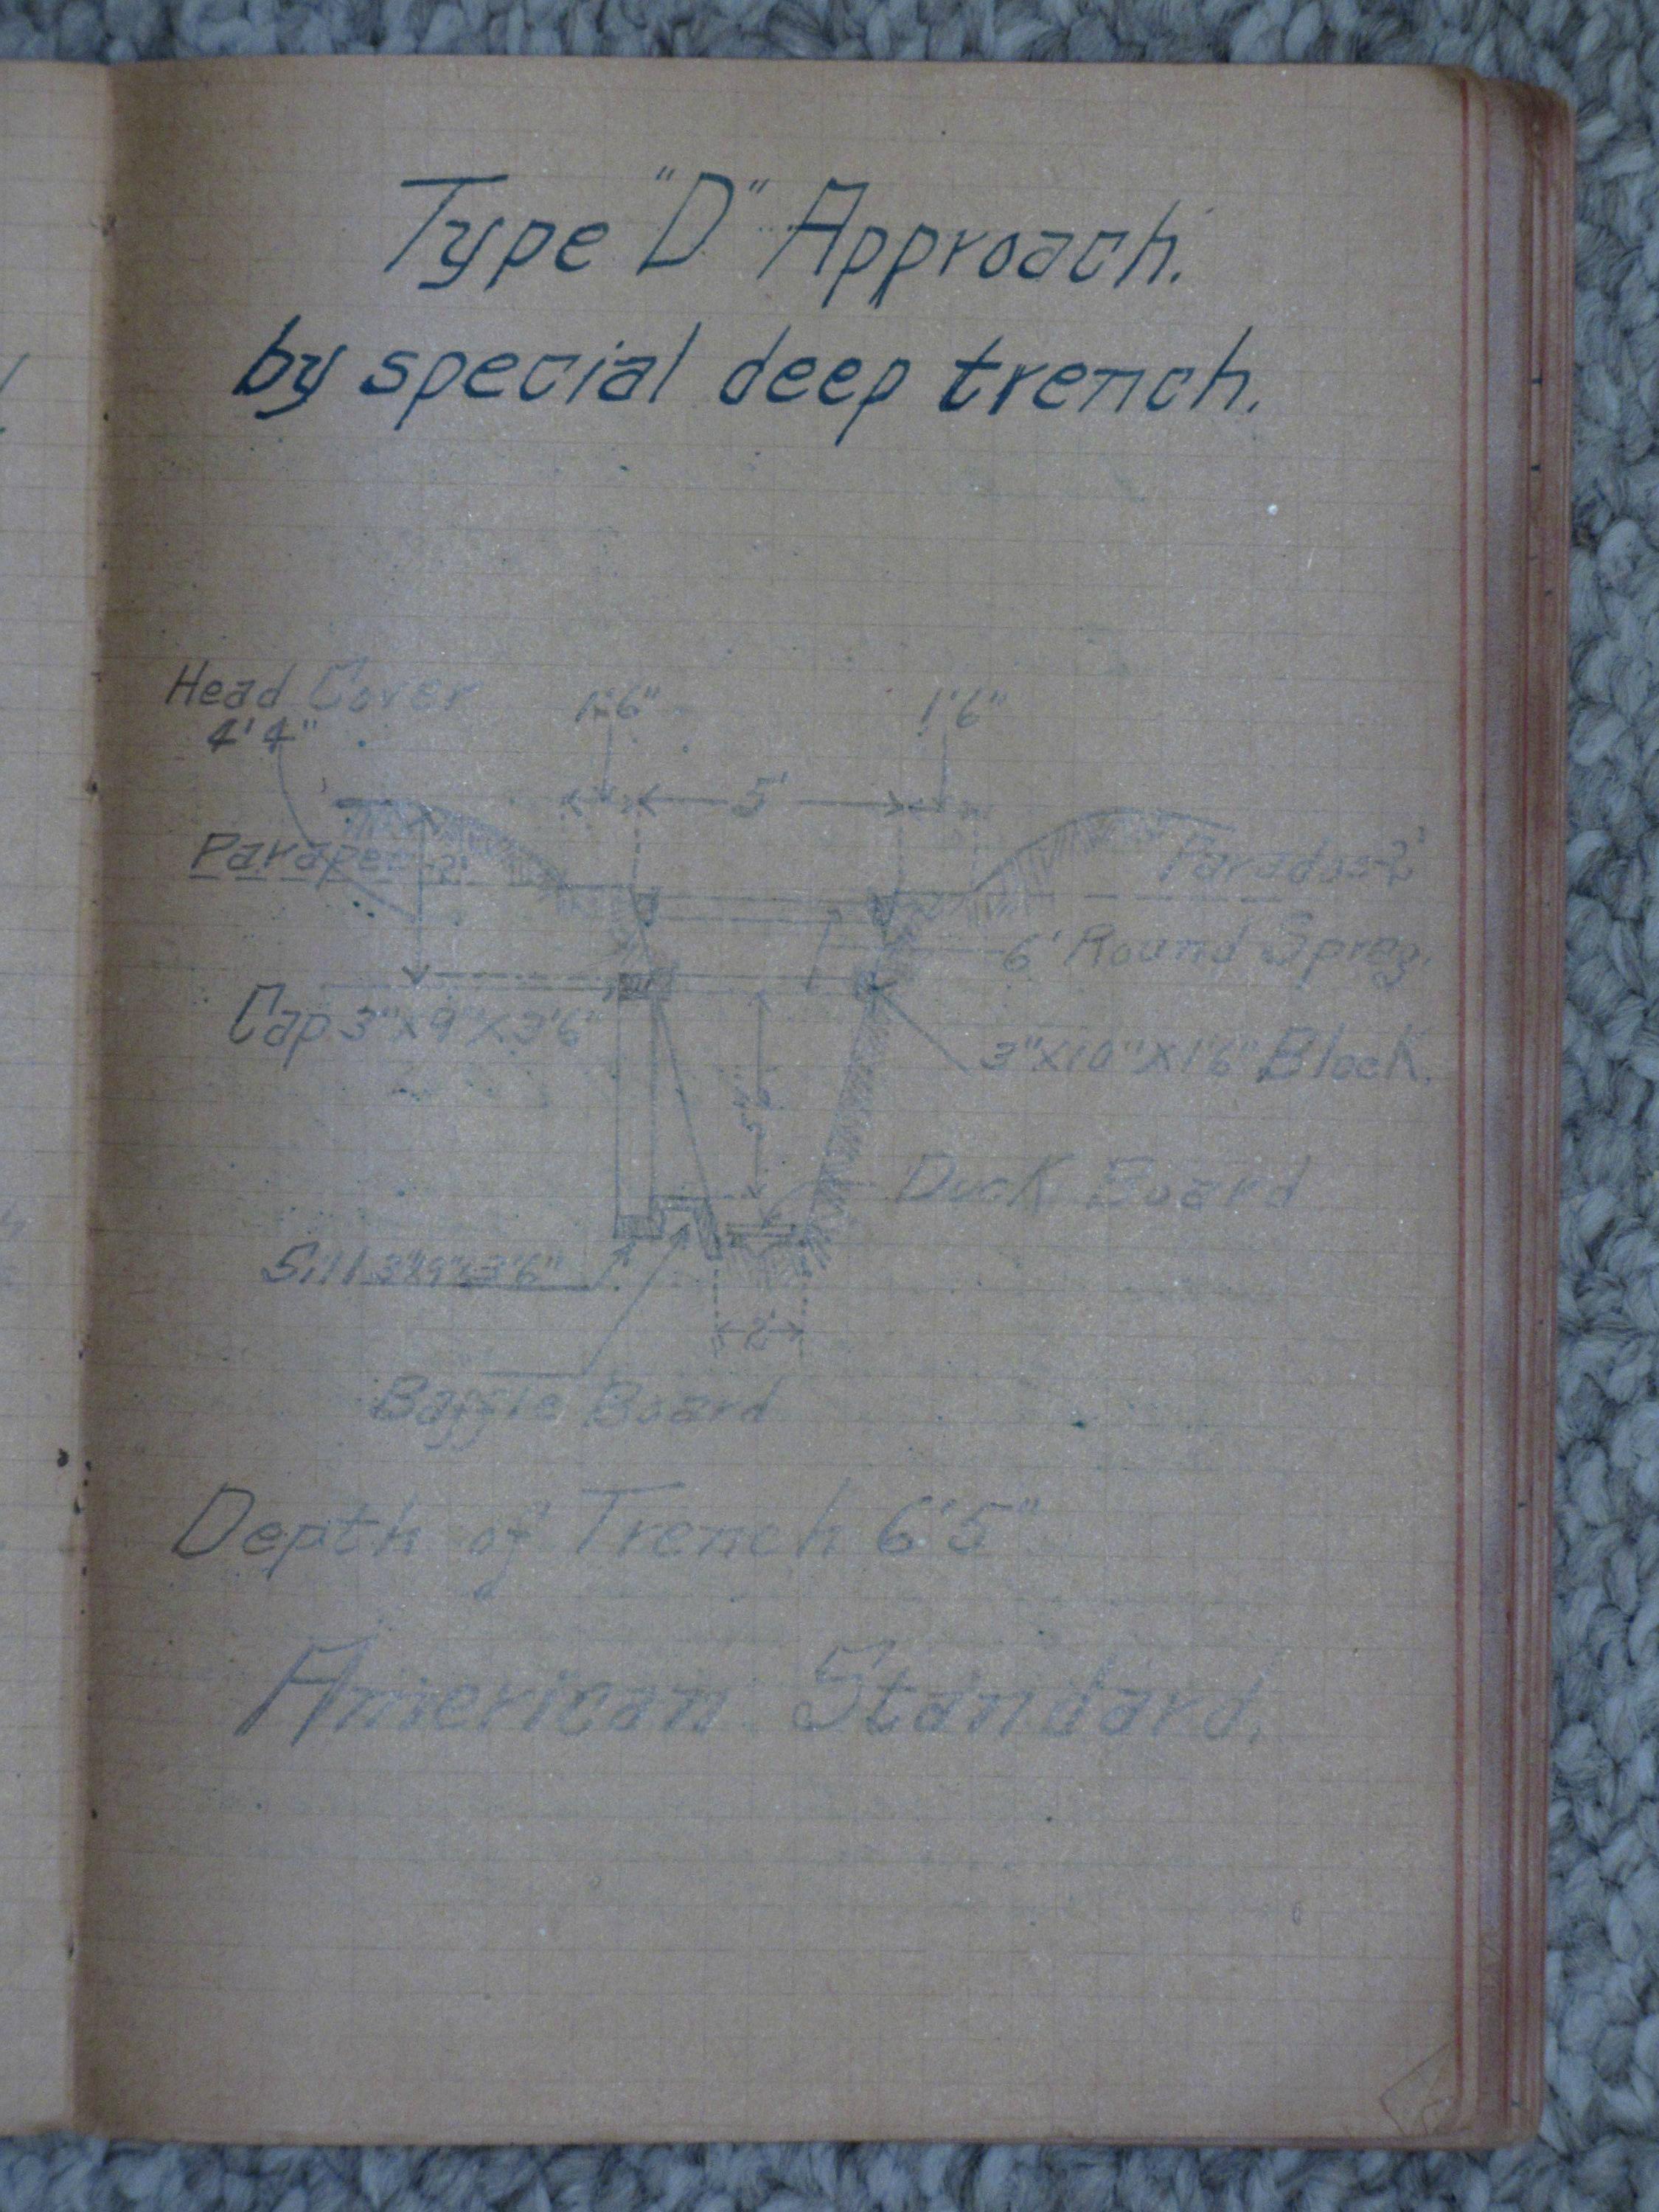 Type "D" Approach.
by special deep trench.
Head Cover
4'4"
1'6"
1'6"
5'
Parapet 2'
Parados 2'
6' Round Sprag.
Cap 3"X9"X3'6"
3"X10"X1'6" Block.
Duck Board
Sill 3"X9"X3'6"
2'
Baffle Board
Depth of Trench 6'5"
American Standard.